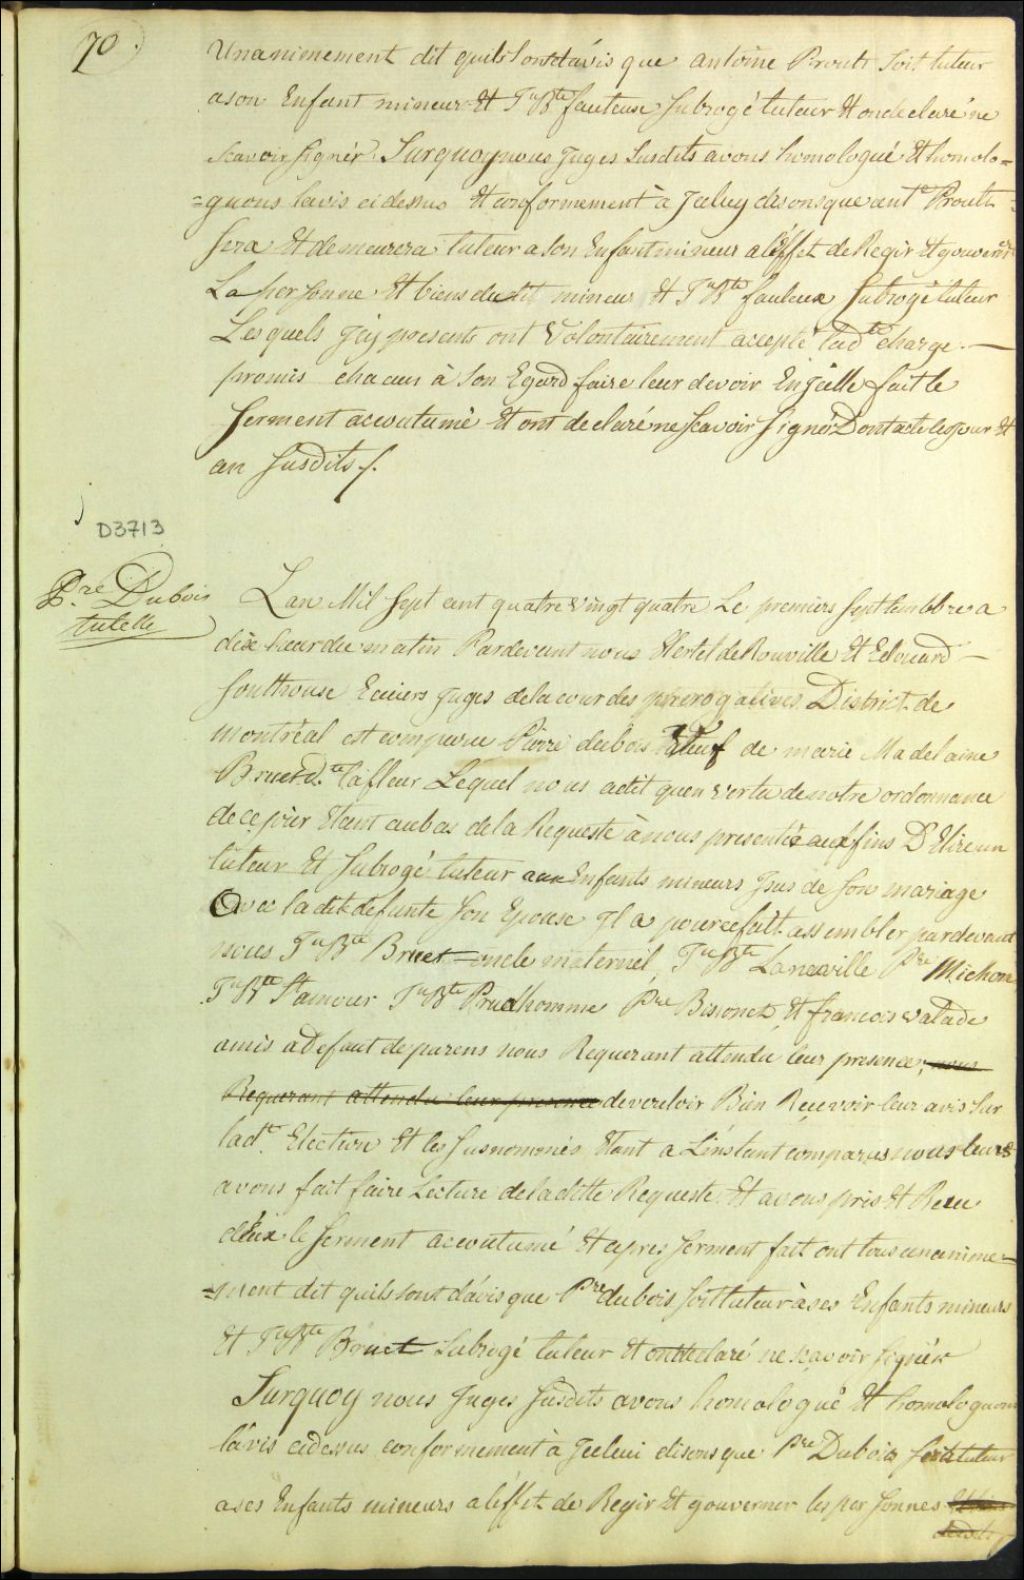 70.
Unanimement dit quils sont davis que antoine Proult soit tuteur
a son Enfant mineur Et Jn Bte fauteux subrogé tuteur Et ont declaré ne
scavoir signér. Surquoy nous Juges Susdits avons homologué Et homolo=
=guons lavis ci dessus Et conformement à Jceluy disons que ante Proult
sera Et demeurera tuteur a son Enfant mineur a léffet de Regir Et gouverner
La personne Et biens dudit mineur Et Jn Bte fauteux Subrogé tuteur
Lesquels Jcy presents ont volontairement accepté ladte charge. —
promis chacun à son Egard faire leur devoir En Jcelle fait le
Serment accoutumé Et ont declaré ne scavoir signér Dont acte les jour Et
an susdits ./.
D3713
Pre Dubois
tutelle
Lan Mil sept cent quatre vingt quatre Le premiers septembbre a
dix heur du matin Pardevant nous Hertel de Rouville Et Edouard —
Southouse Ecuiers Juges de la cour des prerogatives District de
Montréal est comparu Pierre dubois Veuf de marie Madelaine
Bruet Dte lafleur Lequel nous a dit quen vertu de notre ordonnance
de ce jour Etant au bas de la Requeste à nous presentée aux fins D'Elire un
tuteur Et Subrogé tuteur aux Enfants mineurs Jssus de son mariage
Avec ladit défunte son Epouse Jl a pour ce fait assembler pardevant
nous Jn Bte Bruet oncle maternél, Jn Bte Laneuville Pre Michon
Jn Bte St amour Jn Bte Prudhomme Pre Bissonet, Et francois valade
amis a Defaut de parens nous Requerant attendu leur presence, nous
Requerant attendu leur presence de vouloir Bien Recevoir leur avis sur
ladte Election Et les susnommés Etant a Linstant comparus nous leurs
avons fait faire Lecture de la ditte Requeste Et avons pris Et Recu
déux le serment accoutumé Et apres serment fait ont tous unanime=
=ment dit quils sont davis que Pre dubois soit tuteur à ses Enfants mineurs
Et Jn Bte Bruet Subrogé tuteur Et ont declaré ne scavoir signér
Surquoy nous Juges susdits avons homologué Et homologuons
lavis cidessus conformement à Jceleui disons que Pre Dubois sera tuteur
a ses Enfants mineurs a léffet de Regir Et gouverner les personnes Et biens